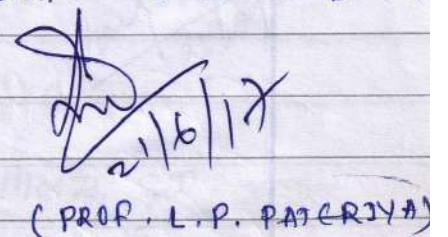 21/6/17
(PROF. L.P. PATERIYA)